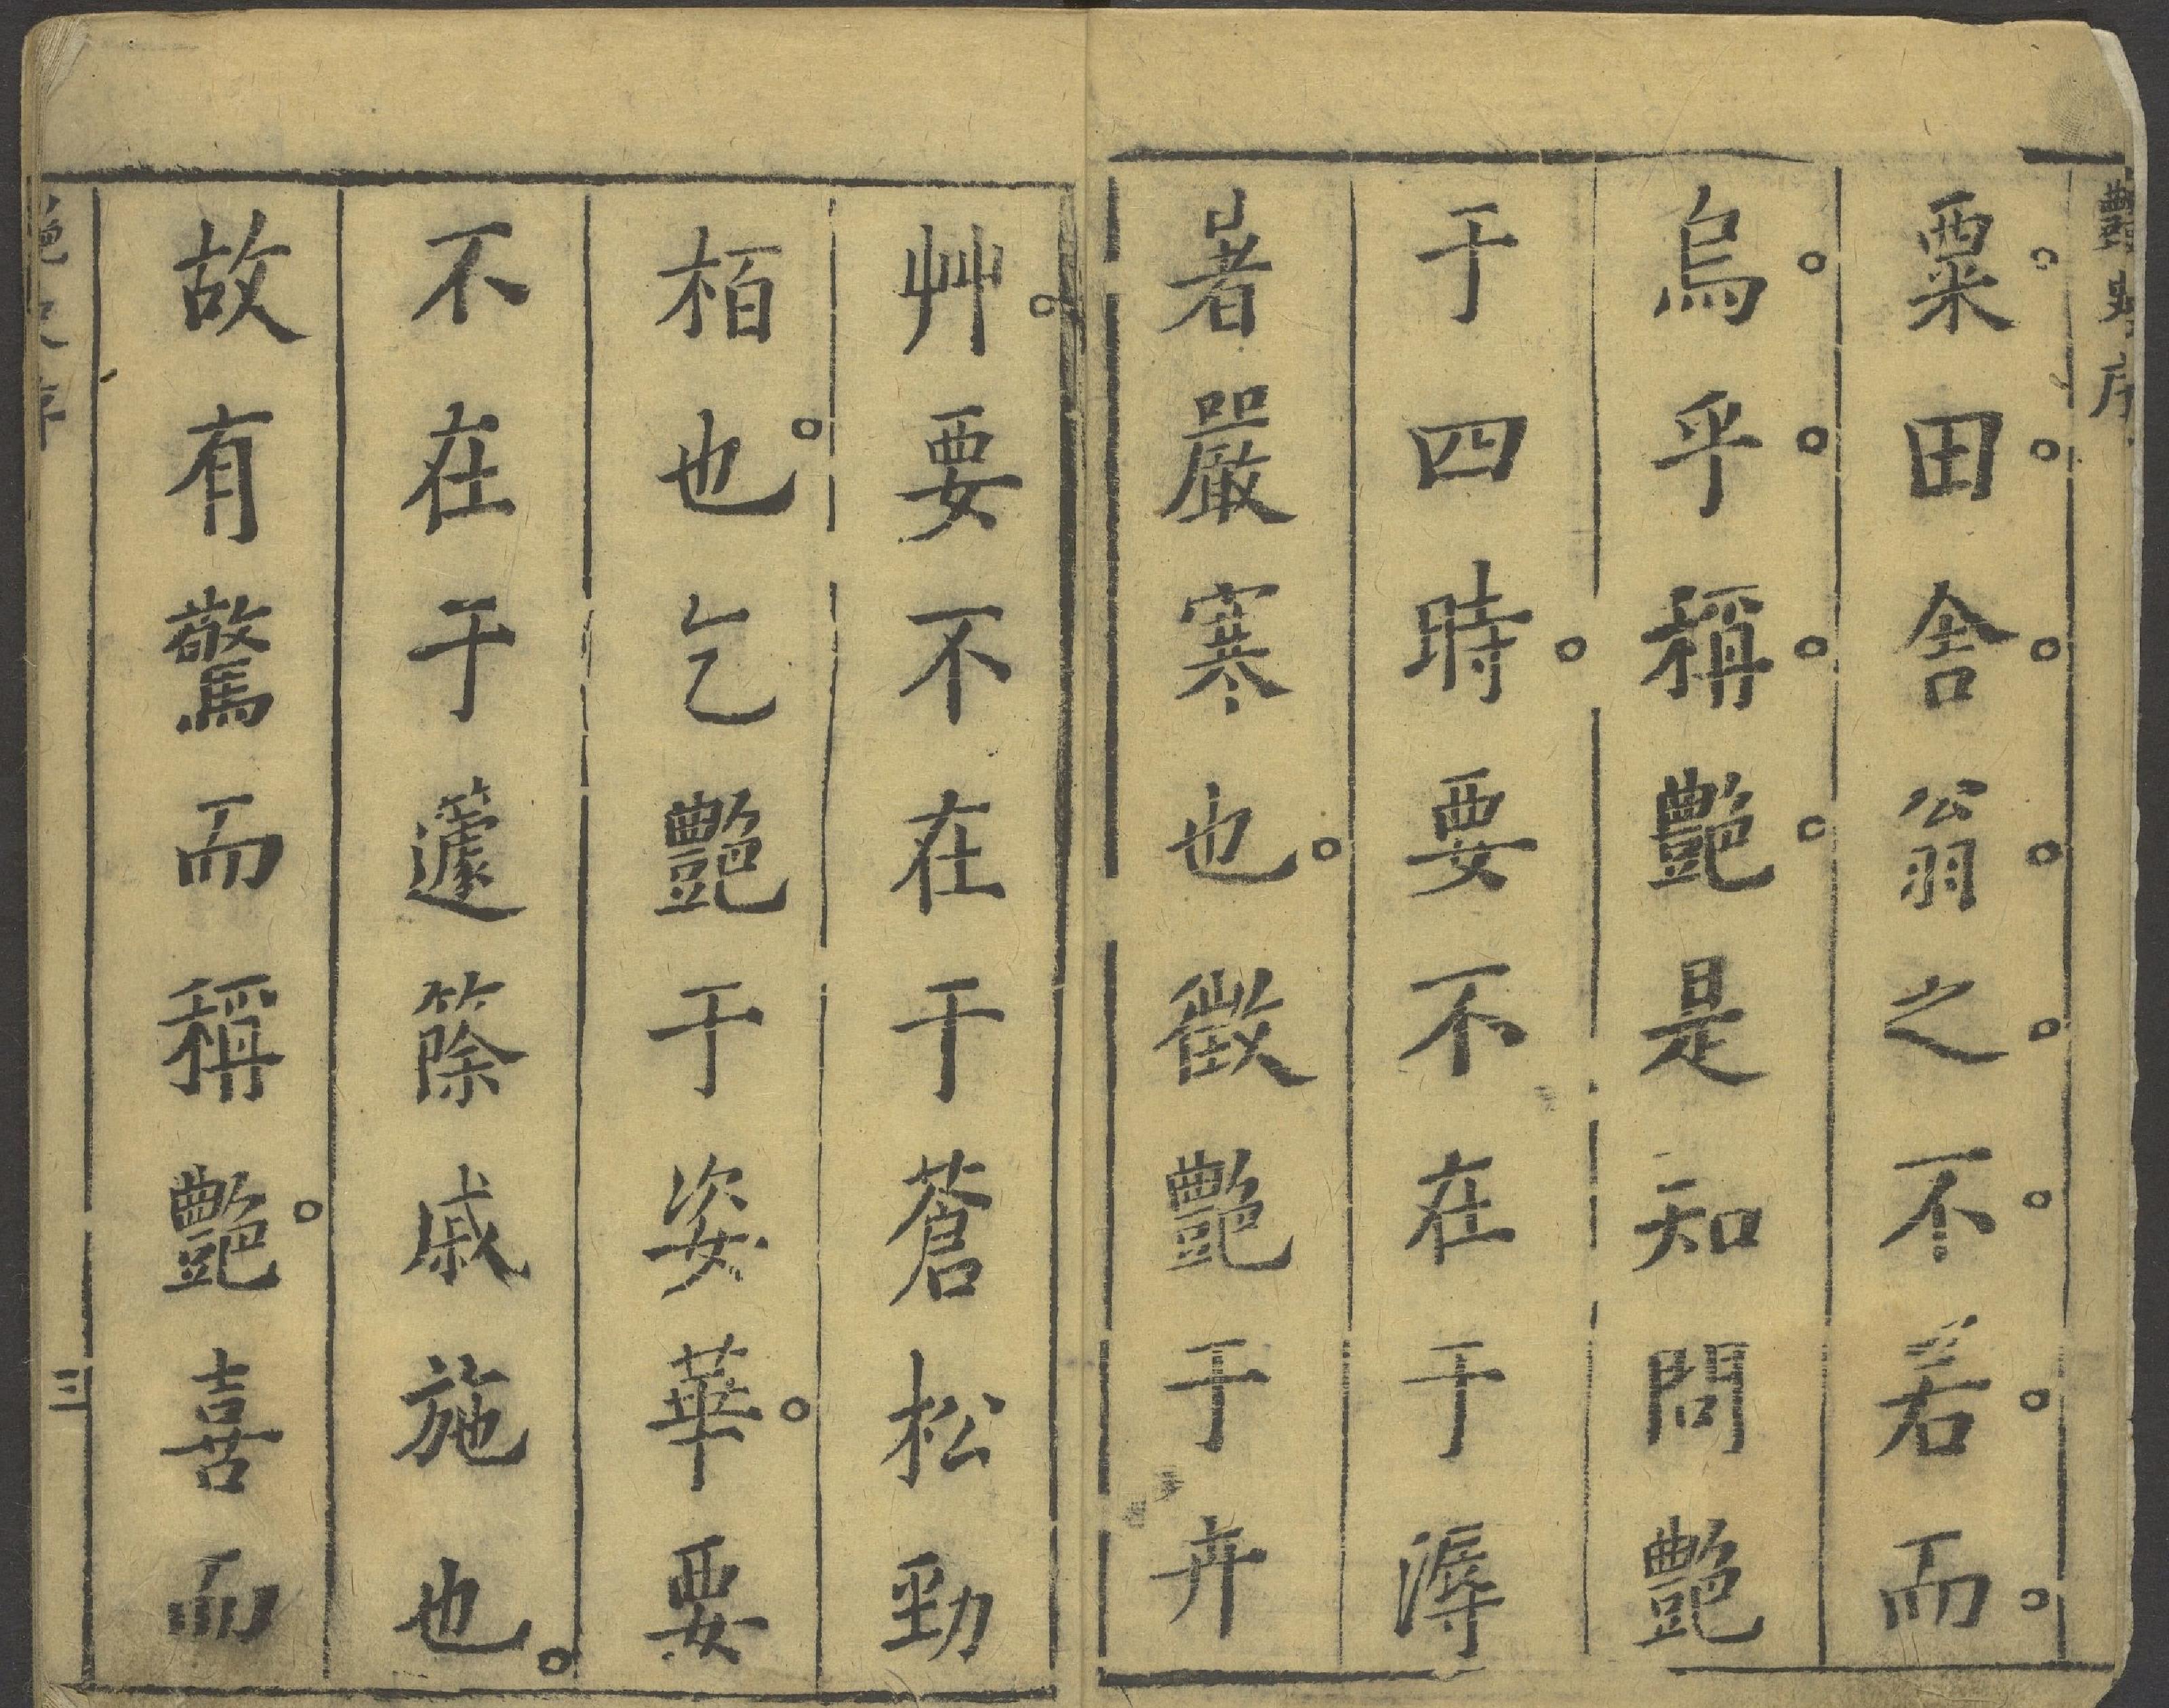 豔異序
粟田舍翁之不若而
烏乎稱豔是知問豔
于四時要不在于溽
暑嚴寒也徵豔于卉
艸要不在于蒼松勁
栢也乞豔于姿華要
不在于籧篨戚施也
故有驚而稱豔喜而
三